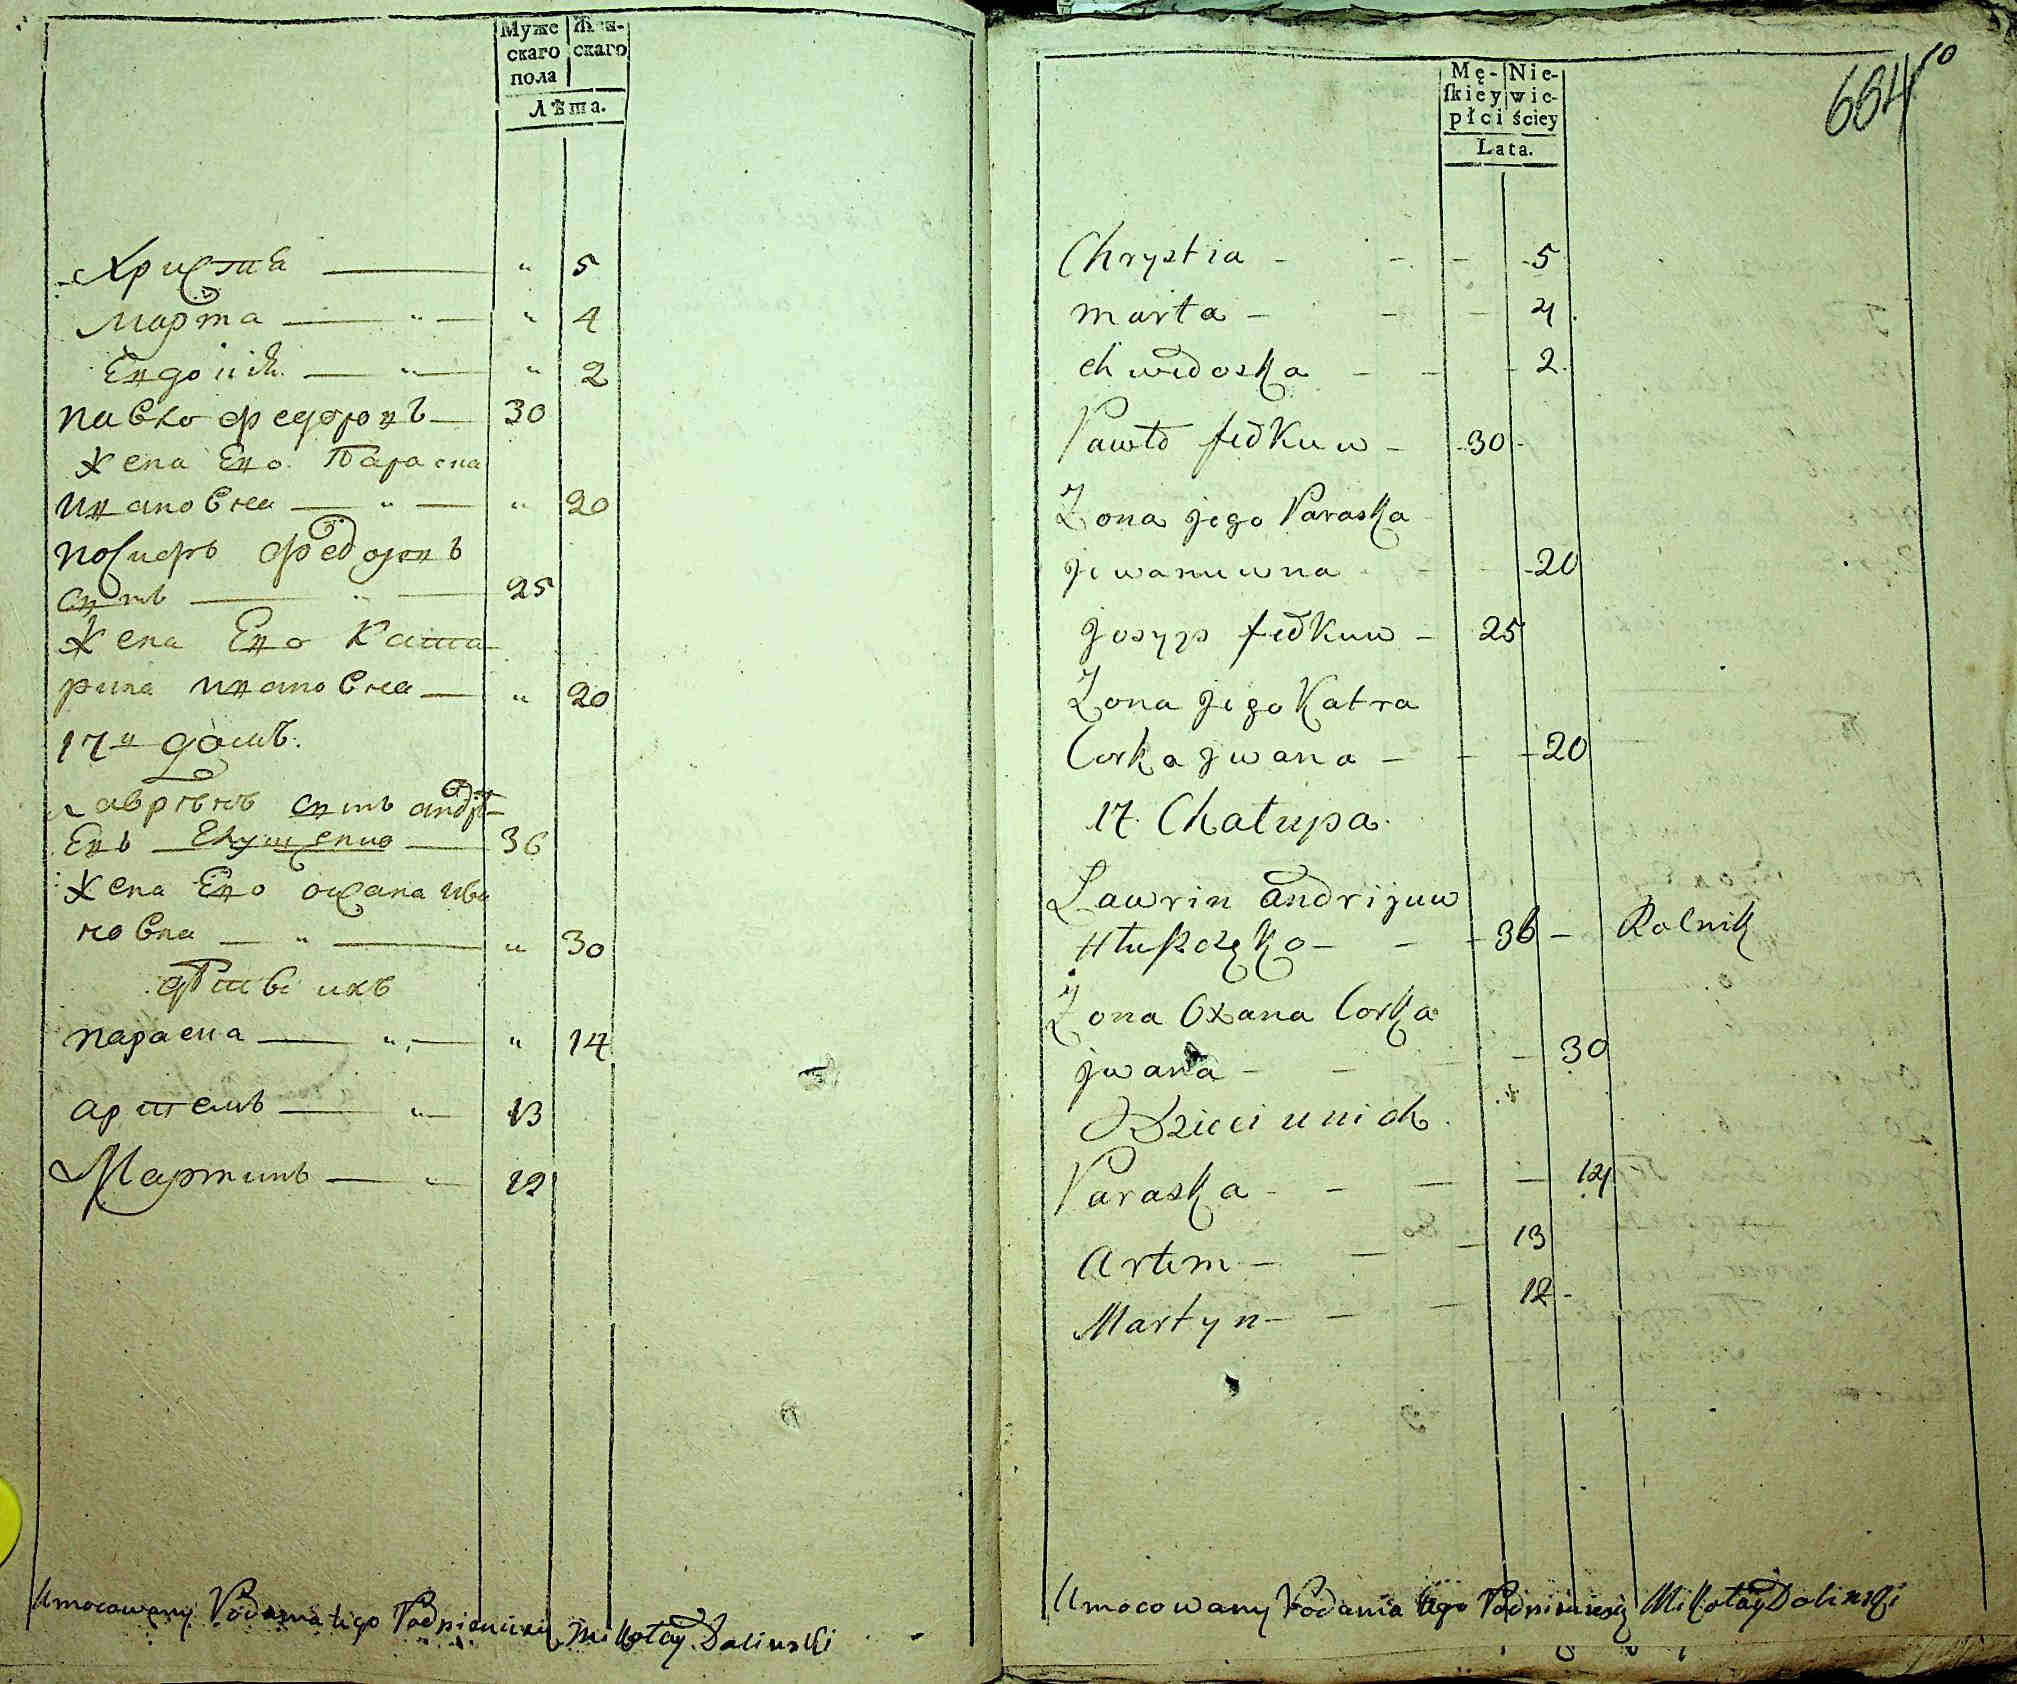 Муже
скаго
пола
Жен-
скаго
Лѣта.
Христя 5
Марта 4
2
Павло Федоровъ 30
Жена Его Параска
Ивановна 20
Іосифъ Федоровъ
сынъ 25
Жена Его Ката
рина Ивановна 20
17й домъ.
Лаврѣнъ сынъ Андрѣ
Евъ 36
Жена Его Оксана Ива
новна 30
Параска 14
Артемъ 13
Мартинъ 12
Umocowany Podania tego Podpisuię Mikołay Dolinski
684
10
Mę-
skiey
płci
Nie-
wie-
ściey
Lata.
Chrystia - - - 5
Marta - - - 4
Chwedoska - - - 2
Pawło fedkuw - 30
Żona jego Paraska
Jwanuwna - - 20
Josyp fedkuw - 25
Żona jego Katra
Corka Jwana - - - 20
17. Chałupa.
Lawrin Andrijuw
Hłuszczęko - - - 36 - Rolnik
Żona Oxana Corka
Jwana - - - - 30
Dzieci u nich.
Paraska - - - - 14
Artem - - - 13
Martyn - - - 12 -
Umocowany Podania tego Podpisuię Mikołay Dolinski